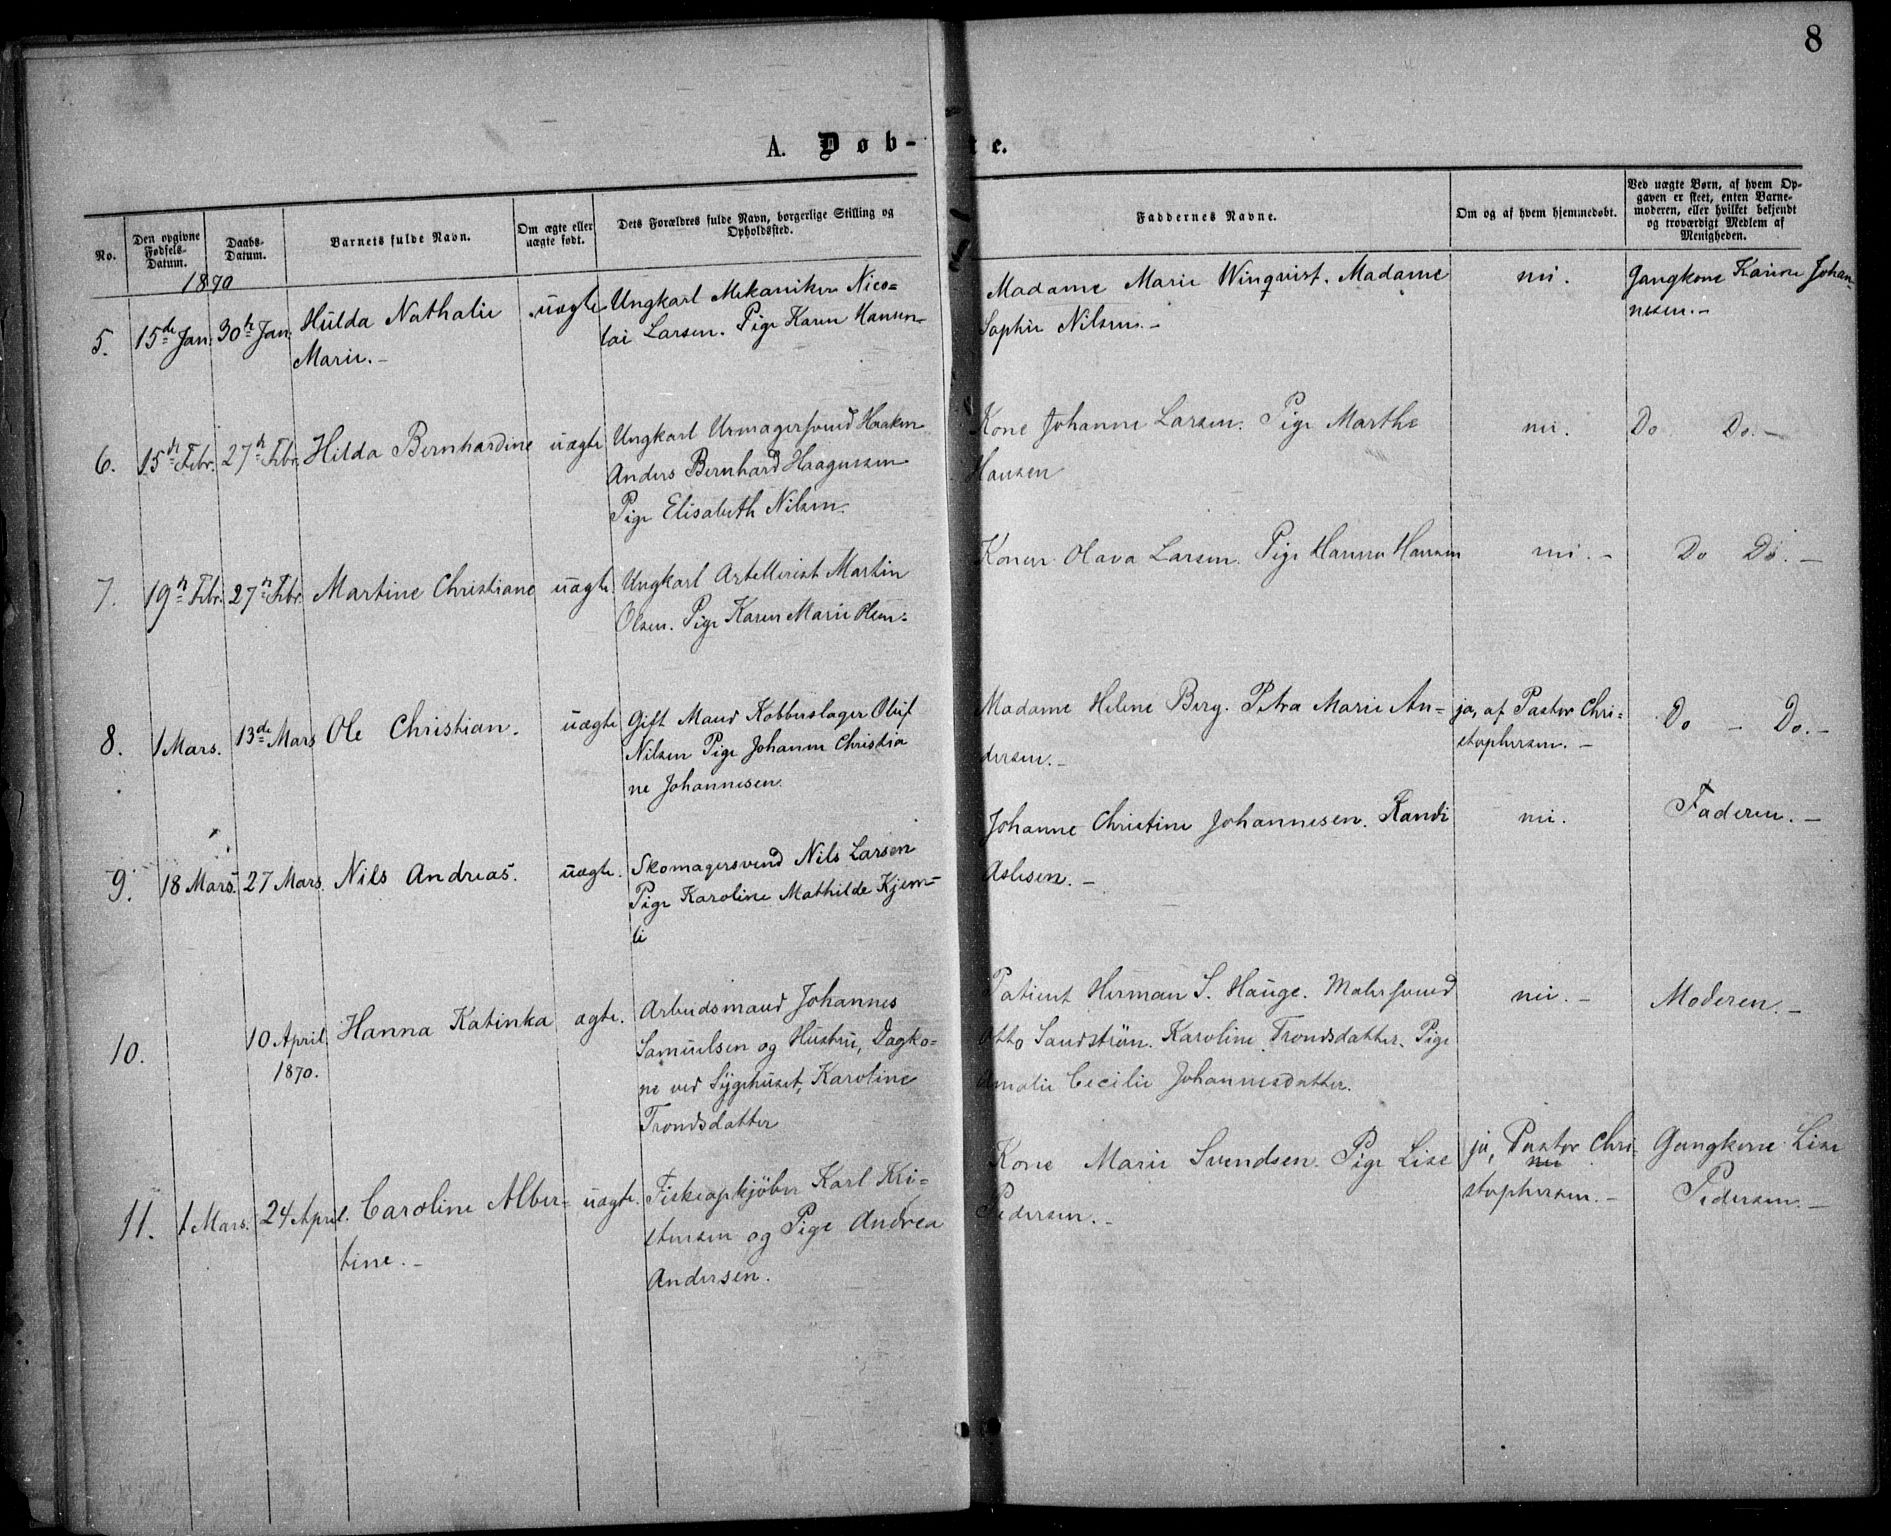 8
A. Døb-te.
No.
Den opgivne Fødsels-Datum.
Daabs-Datum.
Barnets fulde Navn.
Om ægte eller uægte født.
Dets Forældres fulde Navn, borgerlige Stilling og Opholdssted.
Faddernes Navne.
Om og af hvem hjemmedøbt.
Ved uægte Børn, af hvem Op-
gaven er skeet, enten Barne-
moderen, eller hvilket bekjendt
og troværdigt Medlem af
Menigheden.
1870
5. 15de Jan. 30te Jan. Hulda Nathalie
Marie.-
uægte
Ungkarl Mekaniker Nico-
lai Larsen. Pige Karen Hansen-
Madame Marie Winqvist. Madame
Sophie Nilsen.-
nei.
Gangkone Karine Johan-
nesen.-
6. 15de Febr. 27de Febr. Hilda Bernhardine
uægte
Ungkarl Urmagersvend Haaken
Anders Bernhard Haagensen
Pige Elisabeth Nilsen.
Kone Johanne Larsen. Pige Marthe
Hansen
nei.
Do Do.-
7. 19de Febr. 27de Febr Martine Christiane
uægte.
Ungkarl Artellerist Martin
Olsen. Pige Karen Marie Olsen.
Konen Olava Larsen. Pige Hanna Hansen
nei.-
Do Do.-
8. 1 Mars. 13de Mars Ole Christian.
uægte
Gift Mand Kobberslager Oluf
Nilsen Pige Johanne Christia
ne Johannesen.
Madame Helene Berg. Petra Marie An-
dersen.-
ja, af Pastor Chri-
stophersen.-
Do - Do.-
9. 18 Mars. 27 Mars. Nils Andreas.
uægte.
Skomagersvend Nils Larsen
Pige Karoline Mathilde Kjem-
li
Johanne Christine Johannesen. Randi
Aslesen.-
nei.
Faderen.-
10. 10 April.
1870.
Hanna Katinka
ægte.
Arbeidsmand Johannes
Samuelsen og Hustru, Dagko-
ne ved Sygehuset, Karoline
Trondsdatter
Patient Herman S. Hauge. Malersvend
Otto Sandstrøm. Karoline Trondsdatter. Pige
Amalie Cecilie Johannesdatter.
nei.-
Moderen.-
11. 1 Mars. 24 April. Caroline Alber-
tine.-
uægte.
Fiskeopkjøber Karl Kri-
stensen og Pige Andrea
Andersen.
Kone Marie Svendsen. Pige Lise
Pedersen.-
ja, Pastor Chri-
nei
stophersen.-
Gangkone Lise
Pedersen.-